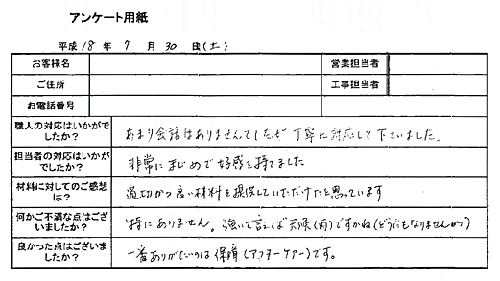 アンケート用紙
平成 18 年 7 月 30 日(土)
お客様名
営業担当者
ご住所
工事担当者
お電話番号
職人の対応はいかがでしたか?
あまり会話はありませんでしたが 丁寧に対応して下さいました。
担当者の対応はいかがでしたか?
非常にまじめで好感を持てました
材料に対してのご感想は?
適切かつ良い材料を提供していただけたと思っています
何かご不満な点はございましたか?
特にありません。強いて言えば天候(雨)ですかね(どうにもなりませんが)
良かった点はございましたか?
一番ありがたいのは保障(アフターケアー)です。